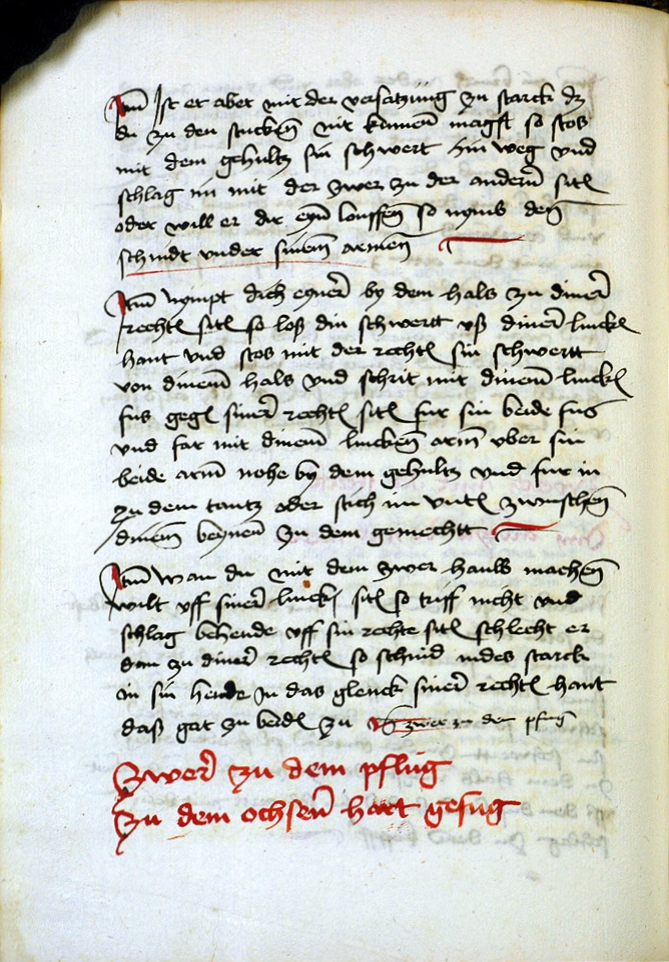 Itm Ist er aber mit der versatzung zu starck dz
du zu den stucken nit kumen magst so stos
mit dem gehultz sin schwert hin weg vnd
schlag in mit der zwer zu der andern sitt
oder will er dir eyn louffen so nyms den
schnidt vnder sinen armen
Itm Nympt dich eyner by dem hals zu diner
rechten sitten so loß din schwertt vß diner lincken
hant vnd stos mit der rechten sin schwertt
von dinem hals vnd schrit mit dinem lincken
fus gegen siner rechten sitten fur sin beide fus
vnd far mit dinem lincken arm vber sin
beide arm nohe by dem gehultz vnd fur in
zu dem tantz oder stich im vnten zwuschen
dinen beynen zu dem gemechtt
Itm wan du mit dem zwer hauw machen
wilt vff siner linck sitten so triff nicht vnd
schlag behende vff sin rechte sitten schlecht er
dan zu diner rechten so schnid indes starck
in sin hende In das glenck siner rechten hant
daß gat zu beiden zu zwer zu der pflug
Zwer zu dem pflug
Zu dem ochsen hart gefug